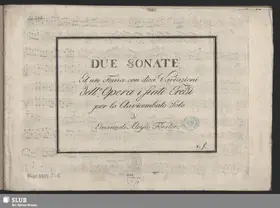 DUE SONATE
Ed un Tema con dieci Variazioni
Dell' Opera i finti Eredi
per lo Clavicembalo Solo
di
Emanuele Aloysio Förster
SLUB